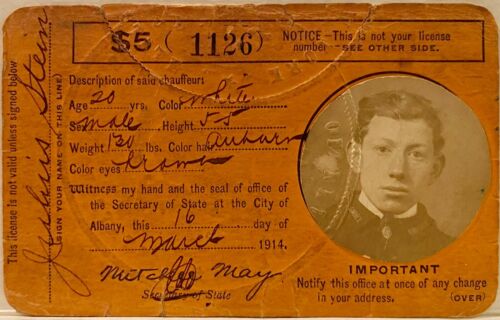 $5 ( 1126 )
NOTICE - This is not your license
number - SEE OTHER SIDE.
This license is not valid unless signed below
(SIGN YOUR NAME ON THIS LINE)
Stein
Description of said chauffeur:
Age 20 yrs. Color White
Sex Male Height 5-5
Weight 130 lbs. Color hair Auburn
Color eyes Brown
Witness my hand and the seal of office of
the Secretary of State at the City of
Albany, this 16 day of
March 1914.
Mitchell May
Secretary of State
IMPORTANT
Notify this office at once of any change
in your address. (OVER)